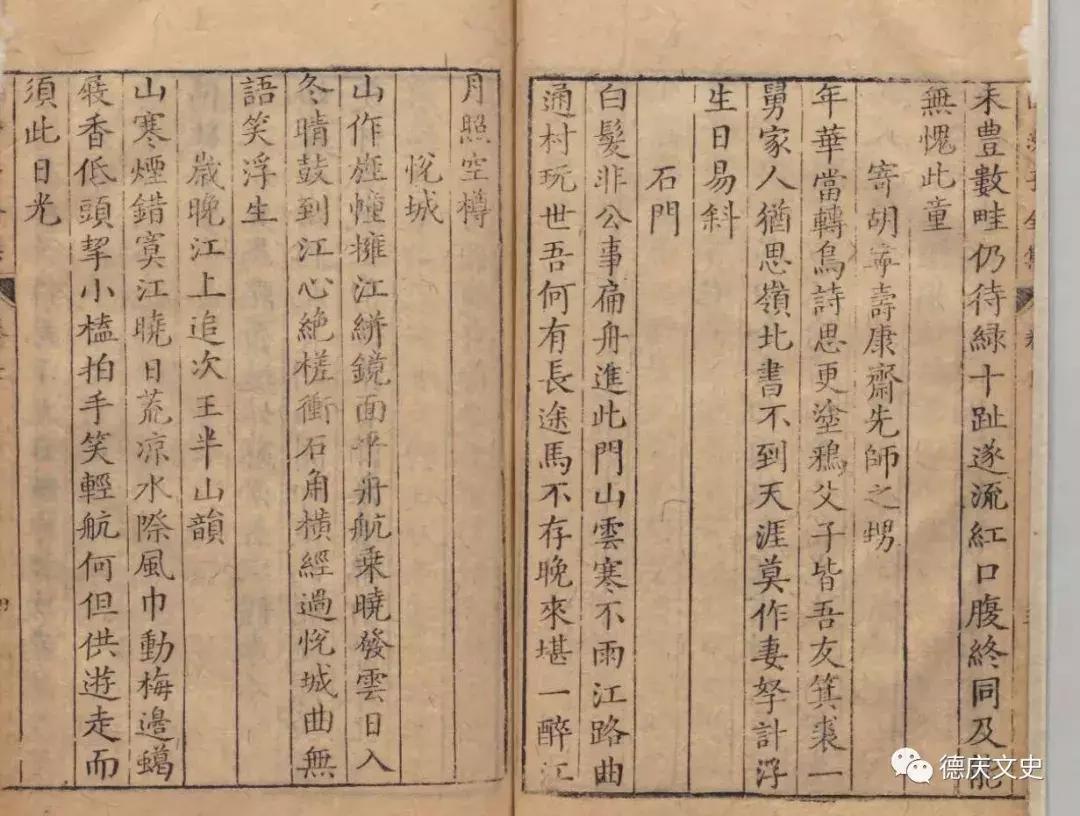 禾豊數畦仍待緑十趾遂流紅口腹終同及能
無愧此童
寄胡寧壽康齋先師之甥
年華當轉烏詩思更塗鴉父子皆吾友箕裘一
舅家人猶思嶺北書不到天涯莫作妻孥計浮
生日易斜
石門
白髮非公事扁舟進此門山雲寒不雨江路曲
通村玩世吾何有長途馬不存晚來堪一醉江
月照空樽
悅城
山作幢擁江絣鏡面平舟航乗曉發雲日入
冬晴鼓到江心絶槎衝石角橫經過悅城曲無
語笑浮生
歲晚江上追次王半山韻
山寒煙錯寞江曉日荒凉水際風巾動梅邊蠟
屐香低頭挈小榼拍手笑輕航何但供遊走而
須此日光
德庆文史